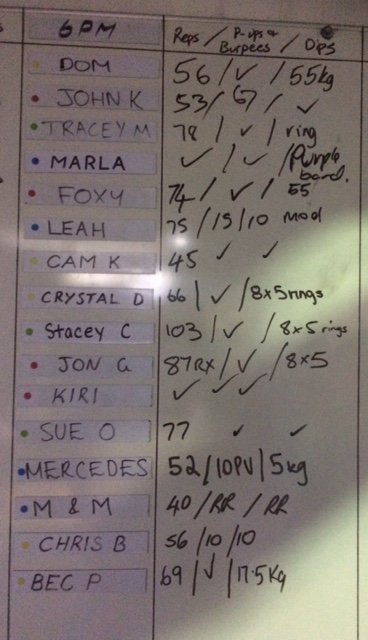 6PM Reps / P-ups or Burpees / Dips
DOM 56 / ✓ / 55kg
JOHN K 53 / 67 / ✓
TRACEY M 78 / ✓ / ring
MARLA ✓ / ✓ / Purple band.
FOXY 74 / ✓ / 55
LEAH 75 / 15 / 10 mod
CAM K 45 ✓ ✓
CRYSTAL D 66 / ✓ / 8x5 rings
Stacey C 103 / ✓ / 8x5 rings
JON G 87RX / ✓ / 8x5
KIRI ✓ ✓ ✓
SUE O 77 ✓ ✓
MERCEDES 52 / 10PU / 5kg
M & M 40 / RR / RR
CHRIS B 56 / 10 / 10
BEC P 69 / ✓ / 17.5Kg